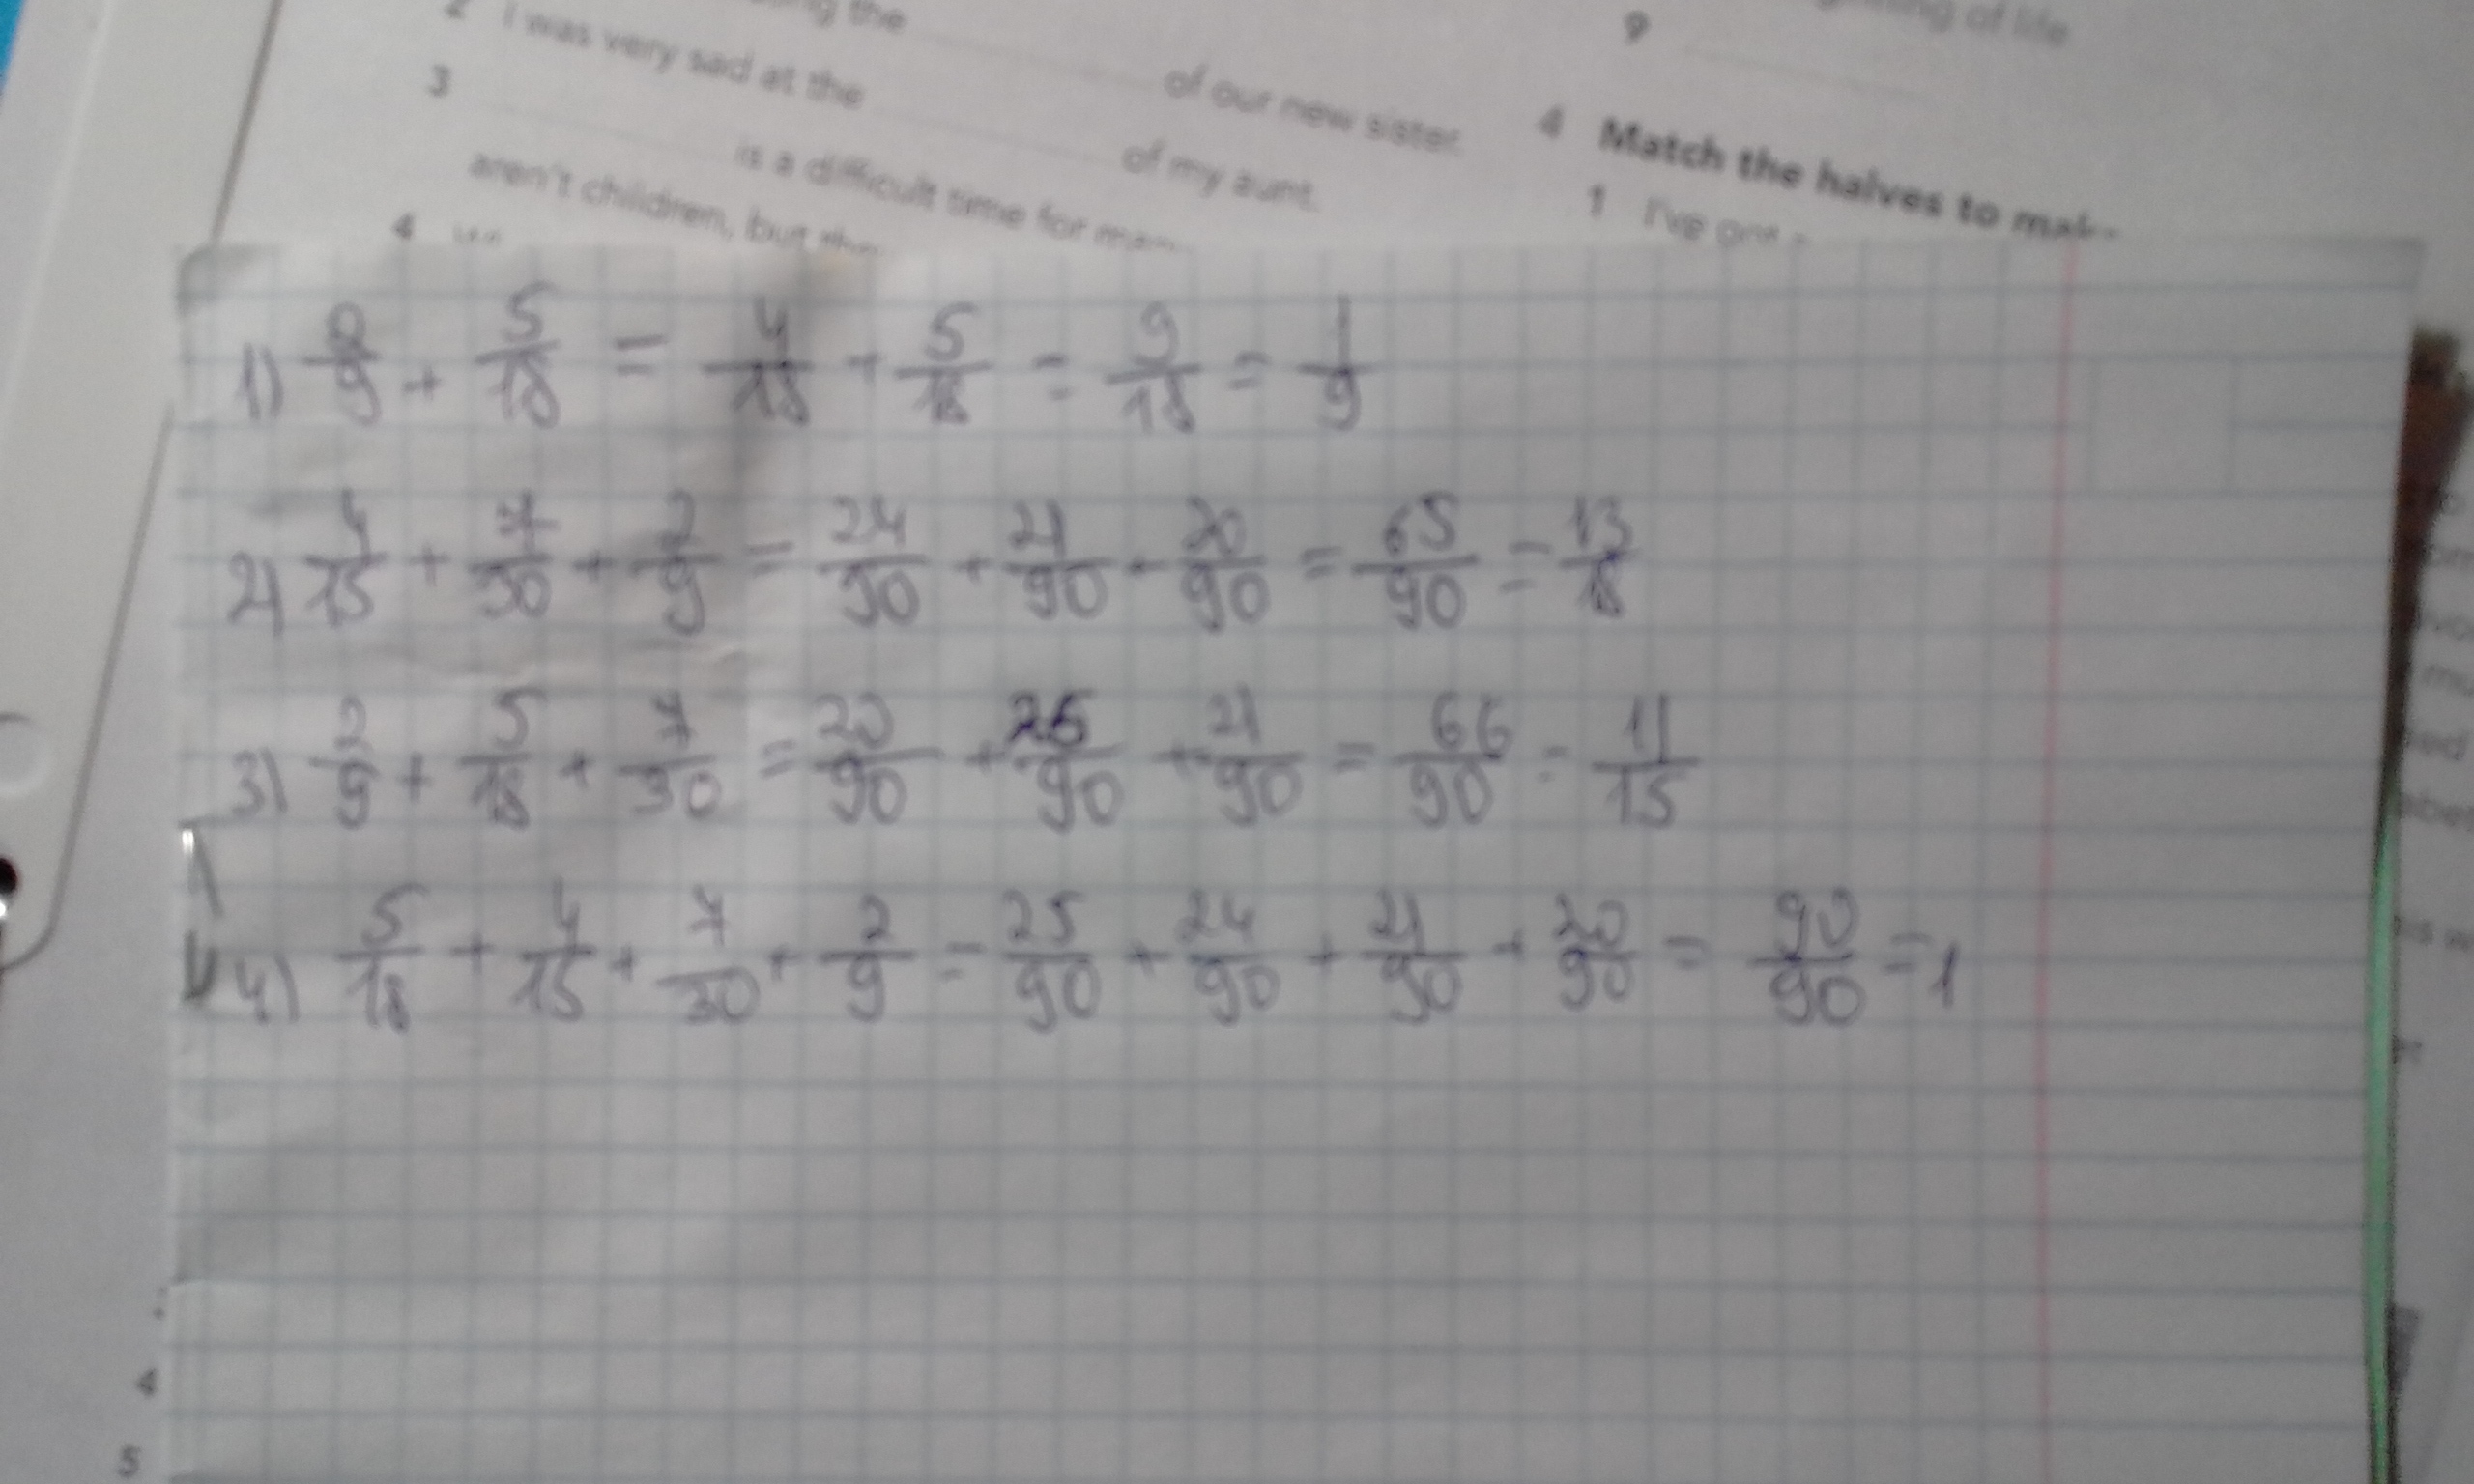 ing the ____ of our new sister.
2 I was very sad at the ____ of my aunt.
3 ____ is a difficult time for
aren't children, but
4
9
of life
4 Match the halves to
1 I've got
1) 2/9 + 5/18 = 4/18 + 5/18 = 9/18 = 1/9
2) 4/15 + 7/30 + 2/9 = 24/90 + 21/90 + 20/90 = 65/90 = 13/18
3) 2/9 + 5/18 + 7/30 = 20/90 + 25/90 + 21/90 = 66/90 = 11/15
4) 5/18 + 4/15 + 7/30 + 2/9 = 25/90 + 24/90 + 21/90 + 20/90 = 90/90 = 1
4
5